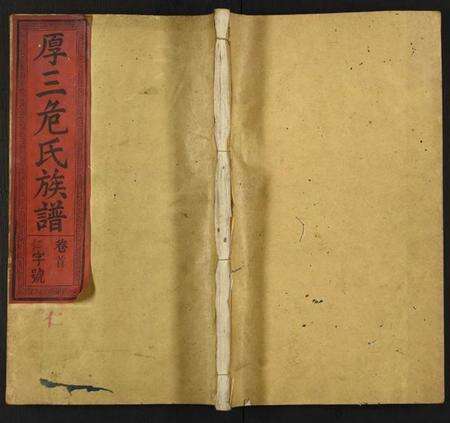 厚三危氏族譜
卷首
仁字號